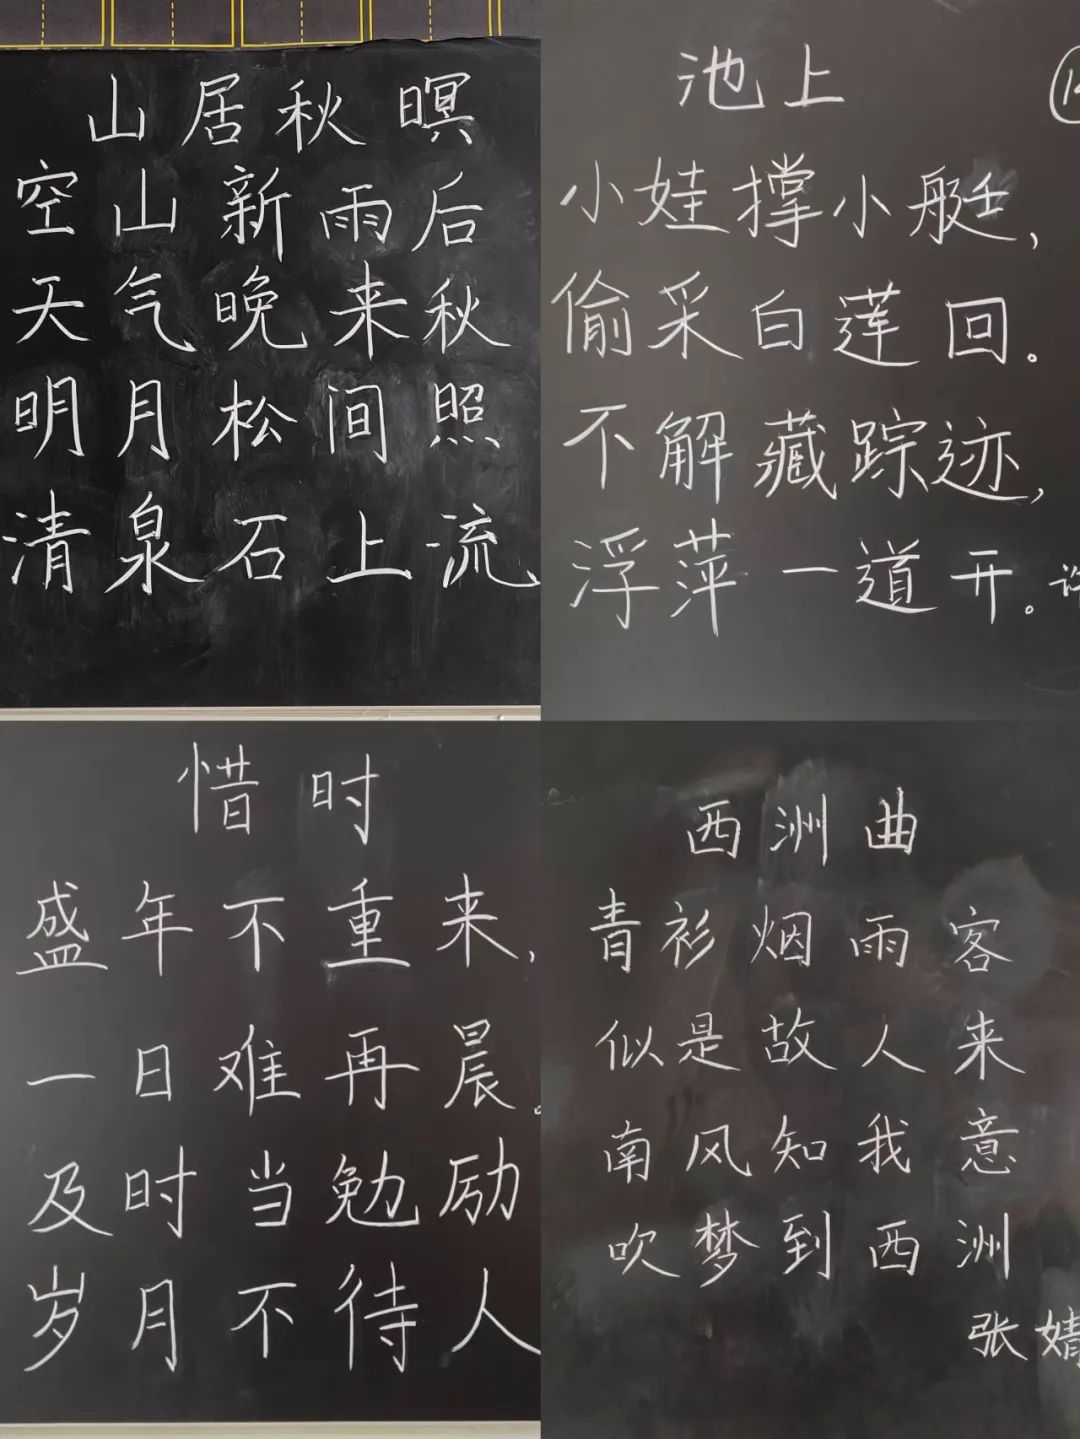 山居秋暝
空山新雨后
天气晚来秋
明月松间照
清泉石上流
池上
小娃撑小艇,
偷采白莲回。
不解藏踪迹,
浮萍一道开。
惜时
盛年不重来,
一日难再晨。
及时当勉励
岁月不待人
西洲曲
青衫烟雨客
似是故人来
南风知我意
吹梦到西洲
张婧